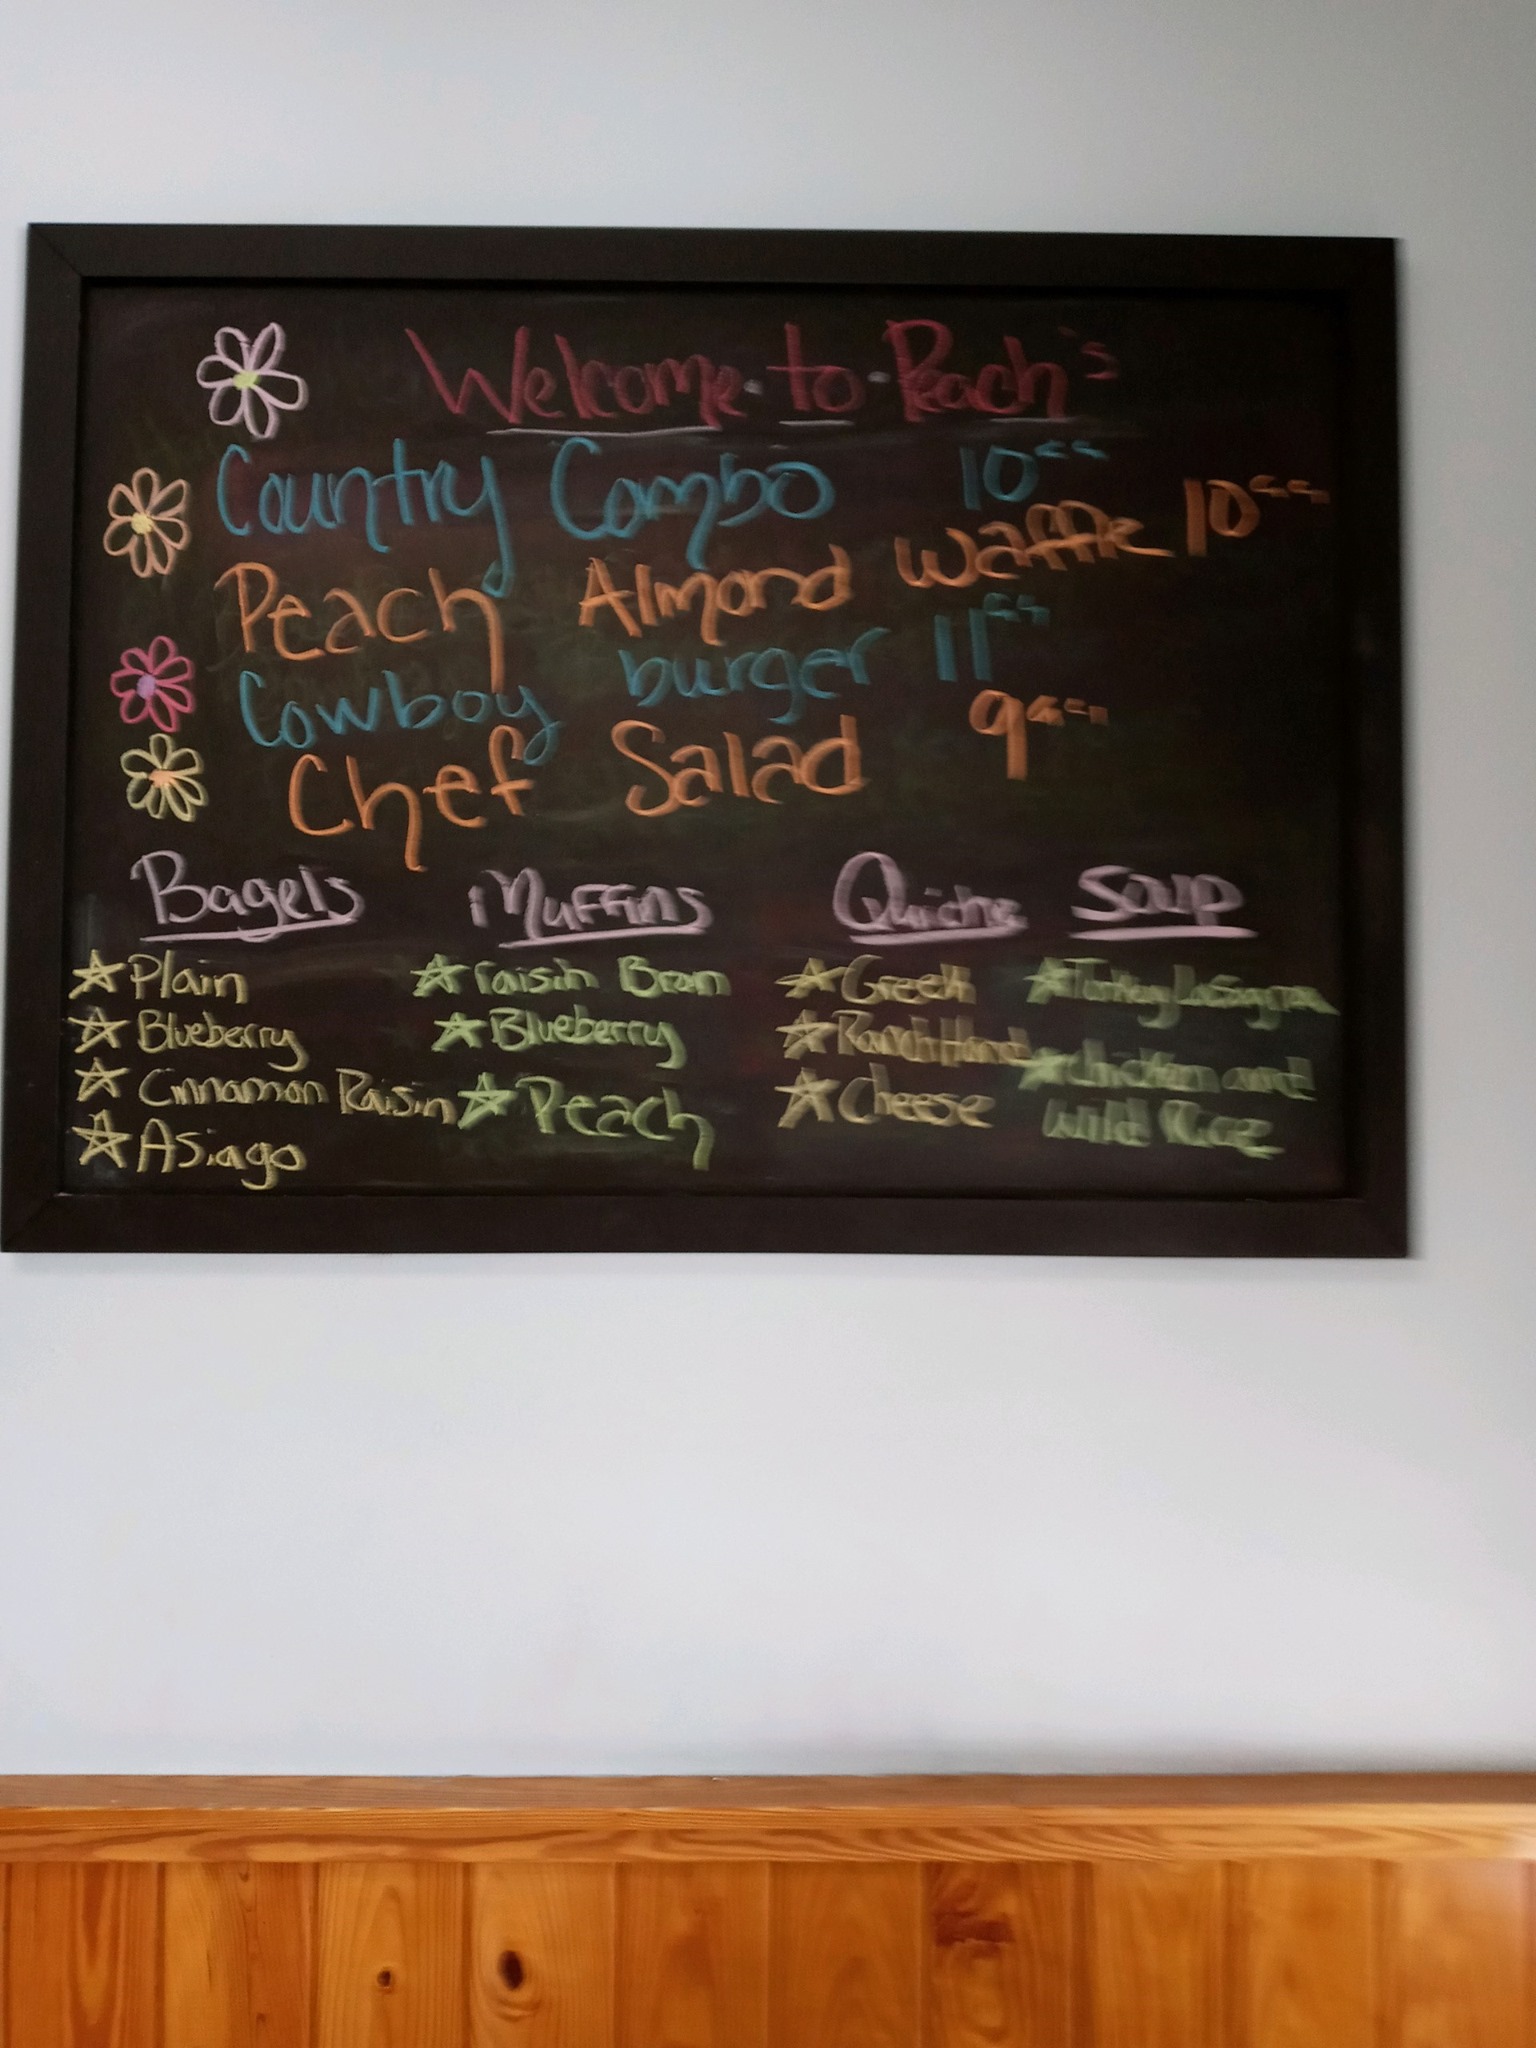 Welcome to Peach's
Country Combo 10
Peach Almond Waffle 10
Cowboy burger 11
Chef Salad 9
Bagels
Plain
Blueberry
Cinnamon Raisin
Asiago
Muffins
raisin Bran
Blueberry
Peach
Quiche
Greek
Ranch Hand
Cheese
Soup
Turkey Lasagna
Chicken and
Wild Rice